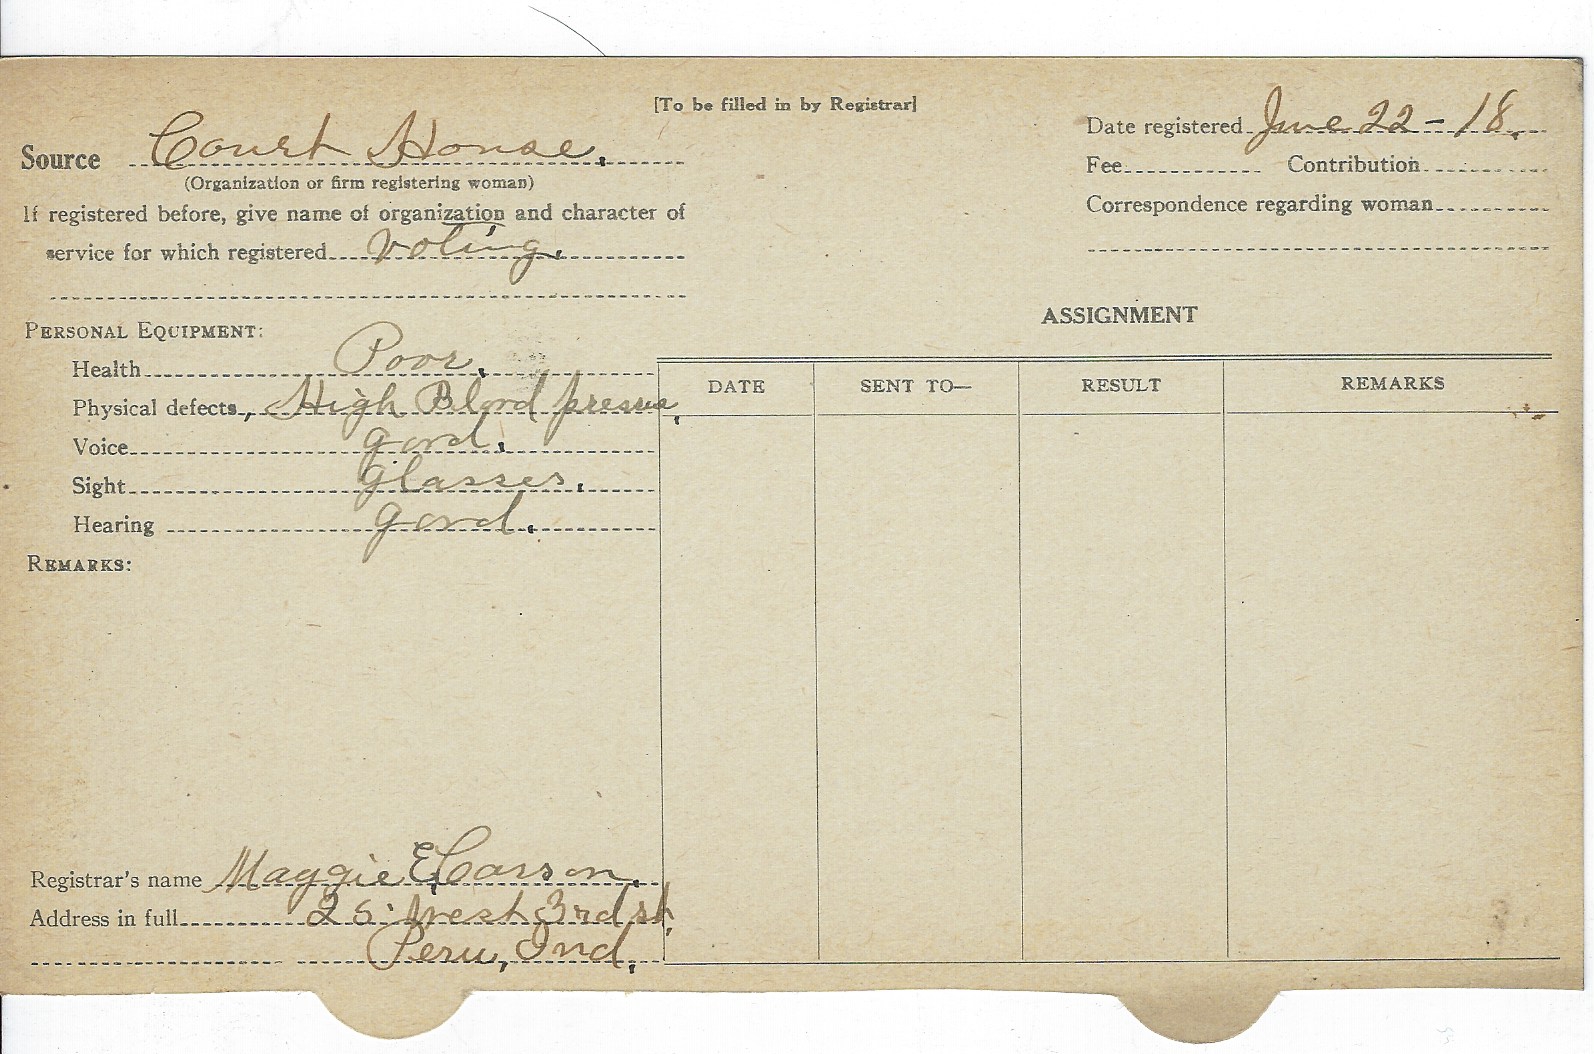 [To be filled in by Registrar]
Source Court House.
(Organization or firm registering woman)
If registered before, give name of organization and character of
service for which registered voting.
PERSONAL EQUIPMENT:
Health Poor.
Physical defects, High Blood presure,
Voice good.
Sight glasses.
Hearing good.
REMARKS:
Registrar's name Maggie E. Carson.
Address in full 25 West 3rd st,
Peru, Ind.
Date registered June 22-18.
Fee Contribution
Correspondence regarding woman
ASSIGNMENT
DATE SENT TO— RESULT REMARKS